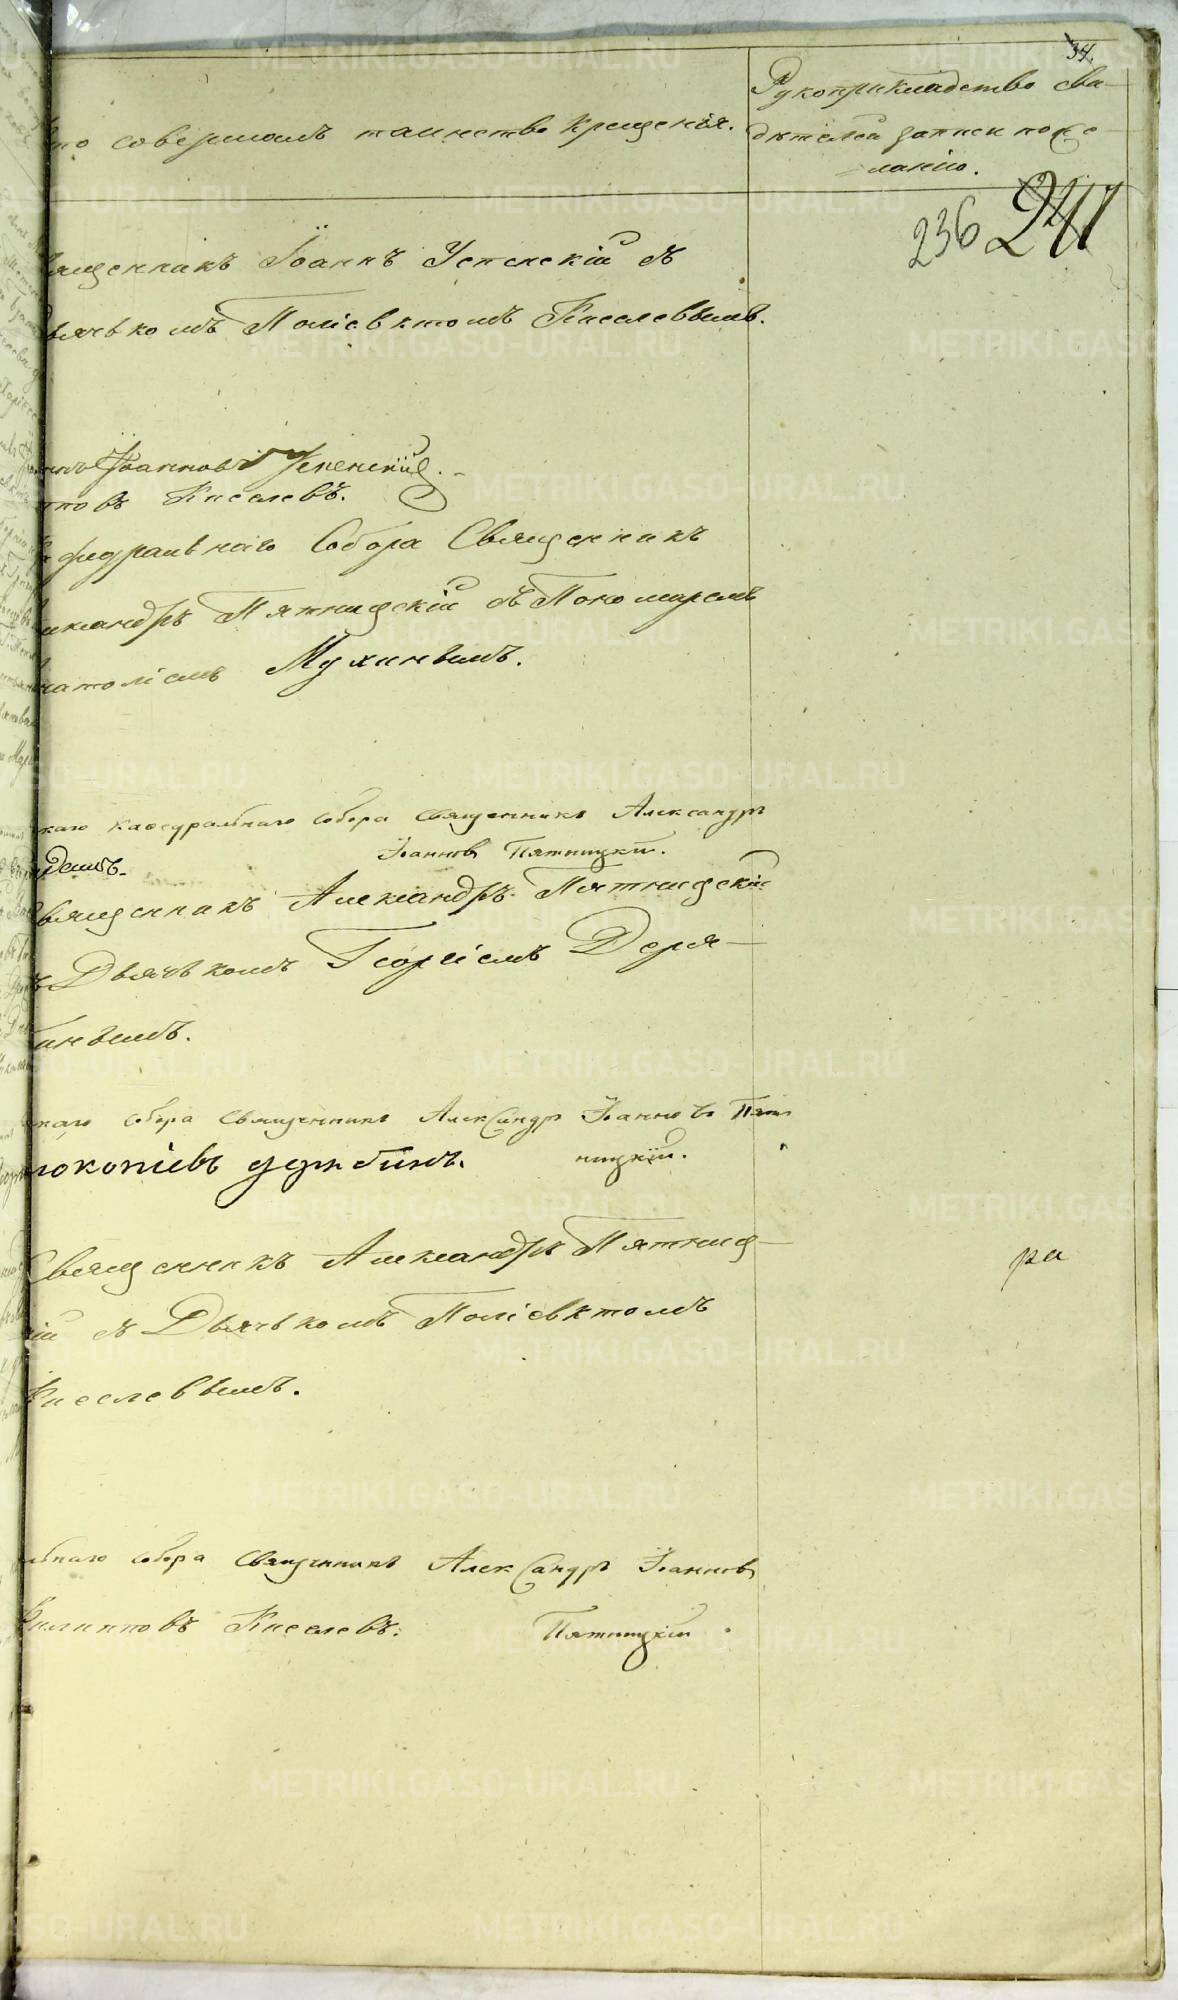 34.
то совершалъ таинство крещенія.
Рукоприкладство сви-
дѣтелей записи по же-
ланію.
236 241
вященникъ Іоаннъ Успенскій съ
ьячькомъ Поліевктомъ Киселевымъ.
Іоанновъ Успенскій.
повъ Киселевъ.
федральнаго Собора Священникъ
лександръ Пятницскій съ Пономаремъ
натоліемъ Мухинымъ.
скаго кафедральнаго собора священникъ Александръ
Іоанновъ Пятницкій.
вященникъ Александръ Пятницскій
ъ Дьячькомъ Георгіемъ Деря-
бинымъ.
собора Священникъ Александръ Іоанновъ Пят
рокопіевъ дерябинъ.
ницкій.
Священникъ Александръ Пятниц-
кій съ Дьячькомъ Поліевктомъ
ра
Киселевымъ.
льнаго собора Священникъ Александръ Іоанновъ
Филипповъ Киселевъ.
Пятницкій
METRIKI.GASO-URAL.RU